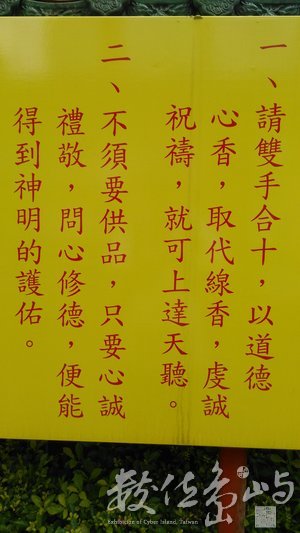 一、請雙手合十，以道德
心香，取代線香，虔誠
祝禱，就可上達天聽。
二、不須要供品，只要心誠
禮敬，問心修德，便能
得到神明的護佑。
數位島嶼
Exhibition of Cyber Island, Taiwan